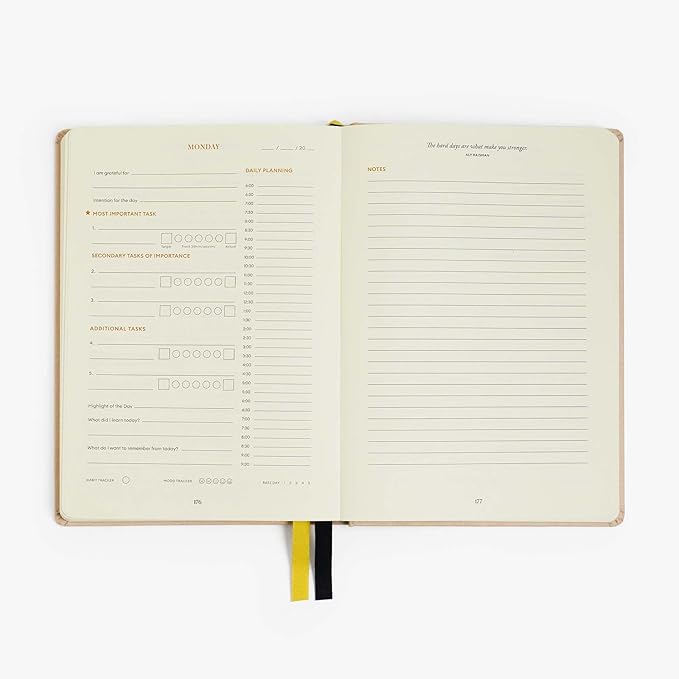 MONDAY
__ / __ / 20 __
I am grateful for
Intention for the day
★ MOST IMPORTANT TASK
1.
Target
Actual
SECONDARY TASKS OF IMPORTANCE
2.
3.
ADDITIONAL TASKS
4.
5.
Highlight of the Day
What did I learn today?
What do I want to remember from today?
HABIT TRACKER
MOOD TRACKER
RATE DAY 1 2 3 4 5
176
DAILY PLANNING
6:00
6:30
7:00
7:30
8:00
8:30
9:00
9:30
10:00
10:30
11:00
11:30
12:00
12:30
1:00
1:30
2:00
2:30
3:00
3:30
4:00
4:30
5:00
5:30
6:00
6:30
7:00
7:30
8:00
8:30
9:00
9:30
The hard days are what make you stronger.
ALY RAISMAN
NOTES
177